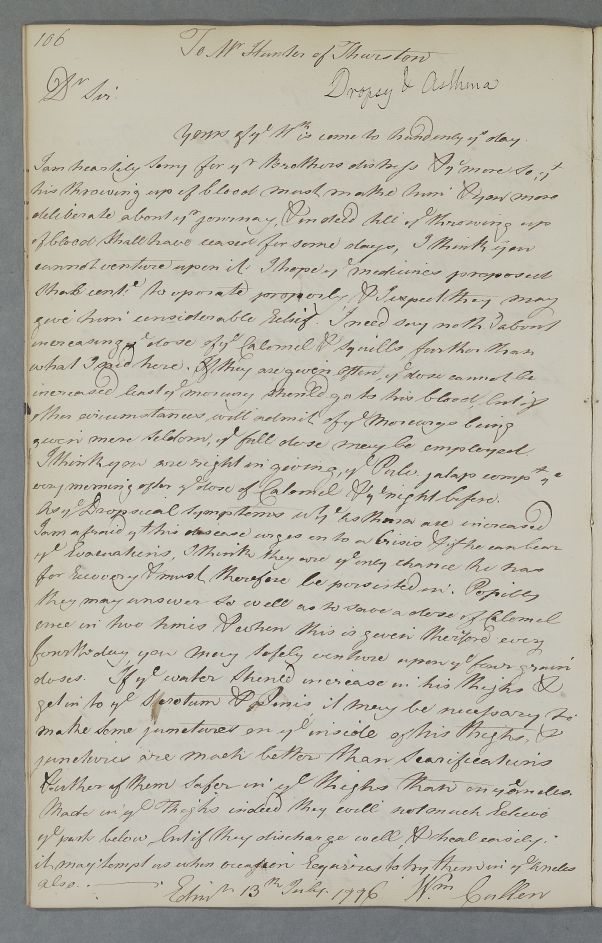 106
To Mr Hunter of Thurston
Dropsy & Asthma
Dr Sir
Yours of ye is come to hand only ys day.
I am heartily sorry for yr Brothers distress & ye more so, yt
his throwing up of blood must make him & you more
deliberate about yr journay, & indeed till ye throwing up
of blood shall have ceased for some days, I think you
cannot venture upon it. I hope ye medicines proposed
shall to operate properly & I expect they may
give him considerable Relief. I need say noth: about
increasing ye dose of ye Calomel & squills further than
what I said here. If they are given often, ye dose cannot be
increased least ye mercury should go to his blood, but if
other circumstances will admit of ye Mercurys being
given more seldom, ye full dose may be employed
I think you are right in giving ye Pulv. jalap compt ye
very morning after ye dose of Calomel & ye night before.
As ye Dropsical symptoms wh ye Asthma are increased
I am afraid yt his disease urges on to a Crisis & if he can bear
ye Evacuations, I think they are ye only chance he has
for Recovery & must therefore be persisted in.
they may answer so well as to save a dose of Calomel
once in two times & when this is given every
fourth day you may safely venture upon ye four grain
doses. If ye water should increase in his thighs &
get in to ye Scrotum & Penis it may be necessary to
make some punctures on ye inside of his thighs, &
punctures are much better than Scarifications
& either of them safer in ye thighs than on ye ancles.
Made in ye Thighs indeed they will not much Relieve
ye part below, but if they discharge well, & heal easily,
it may tempt us when occasion Requires to try them in ye Ancles
also.
Edinr 13th July 1776 Wm Cullen